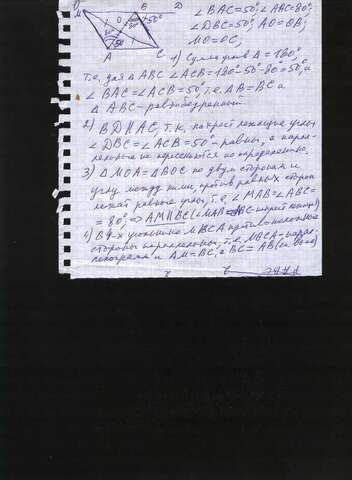 M B D
О 80° 50°
50°
A C
∠ BAC=50°; ∠ ABC=80°;
∠ DBC=50°; AO=OB;
MO=OC;
1) Сумма углов Δ = 180°
т.е. для Δ ABC ∠ ACB=180°-50°-80°=50°, и
∠ BAC = ∠ ACB=50°, т.е. AB=BC и
Δ ABC - равнобедренный
2) BD∥AC, т.к. накрест лежащие углы
∠ DBC=∠ ACB=50° - равны, а парал-
лельные не пересекаются по определению.
3) Δ MOA = Δ BOC по двум сторонам и
углу между ними, против равных сторон
лежат равные углы, т.е. ∠ MAB=∠ ABC=
= 80°, ⇒ AM∥BC (∠ MAB
4) В 4-х угольнике MBCA противоположные
стороны параллельны, т.е. MBCA - парал-
лелограмм и AM=BC, а BC = AB